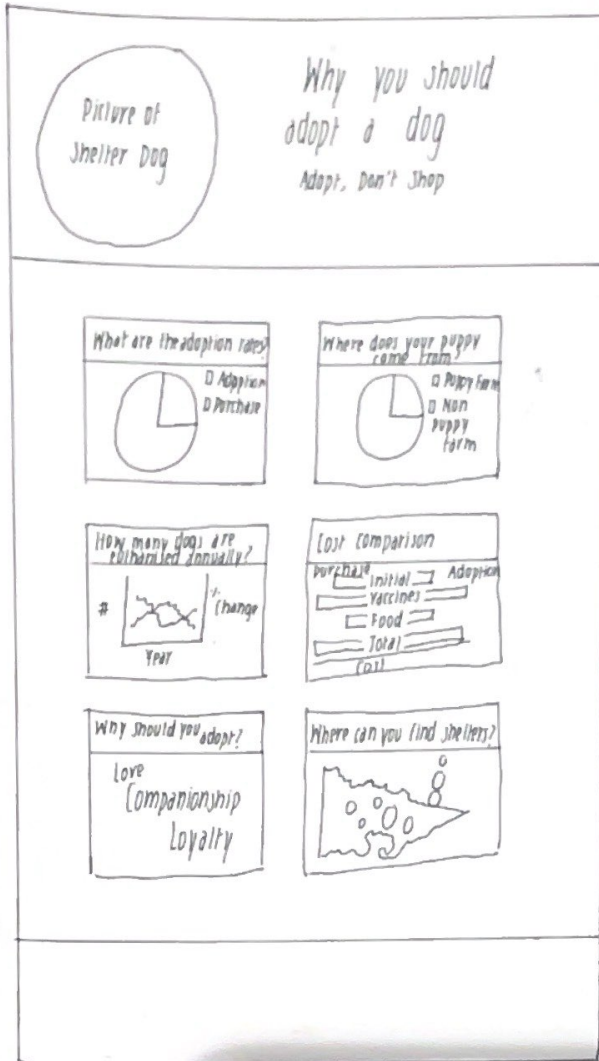 Picture of
Shelter Dog
Why you should
adopt a dog
Adopt, Don't Shop
What are the adoption rates?
Adoption
Purchase
Where does your puppy
come from?
Puppy Farm
Non
Puppy
Farm
How many dogs are
euthanised annually?
#
% Change
Year
Cost Comparison
Purchase
Adoption
Initial
Vaccines
Food
Total
Cost
Why should you adopt?
Love
Companionship
Loyalty
Where can you find shelters?